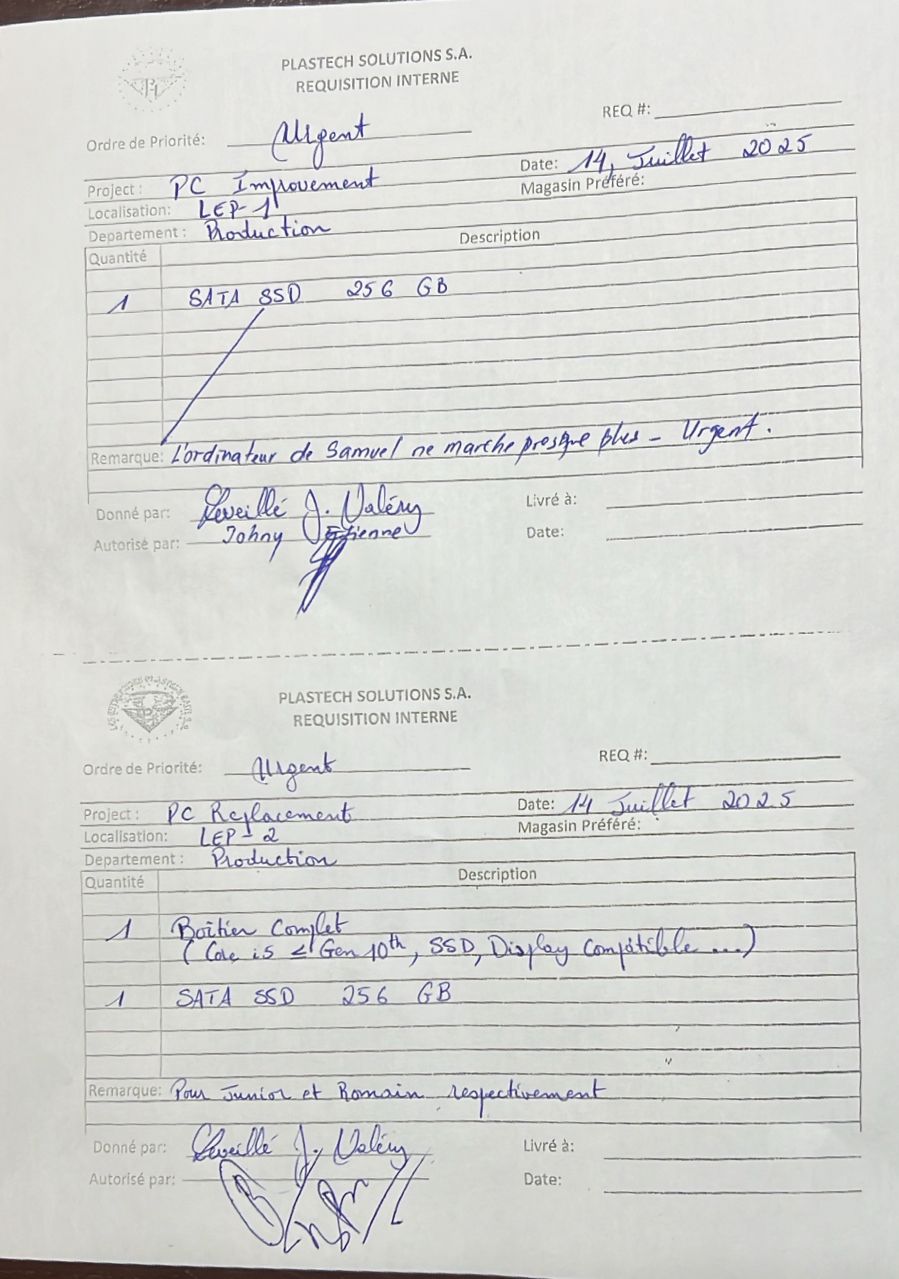 PLASTECH SOLUTIONS S.A.
REQUISITION INTERNE
REQ #:
Ordre de Priorité: Urgent
Date: 14, Juillet 2025
Project : PC Improvement
Magasin Préféré:
Localisation: LEP-1
Departement : Production
Quantité Description
1 SATA SSD 256 GB
Remarque: L'ordinateur de Samuel ne marche presque plus - Urgent.
Donné par: Léveillé J. Valéry
Livré à:
Autorisé par: Johny Etienne
Date:
PLASTECH SOLUTIONS S.A.
REQUISITION INTERNE
REQ #:
Ordre de Priorité: Urgent
Date: 14 Juillet 2025
Project : PC Replacement
Magasin Préféré:
Localisation: LEP-2
Departement : Production
Quantité Description
1 Boîtier Complet
( Core i5 ≤ Gen 10th, SSD, Display Compatible ...)
1 SATA SSD 256 GB
Remarque: Pour Junior et Romain respectivement
Donné par: Léveillé J. Valéry
Livré à:
Autorisé par:
Date: